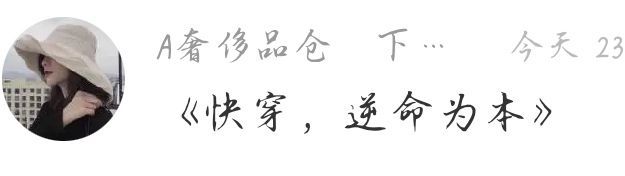 A奢侈品仓 下… 今天 23
《快穿，逆命为本》